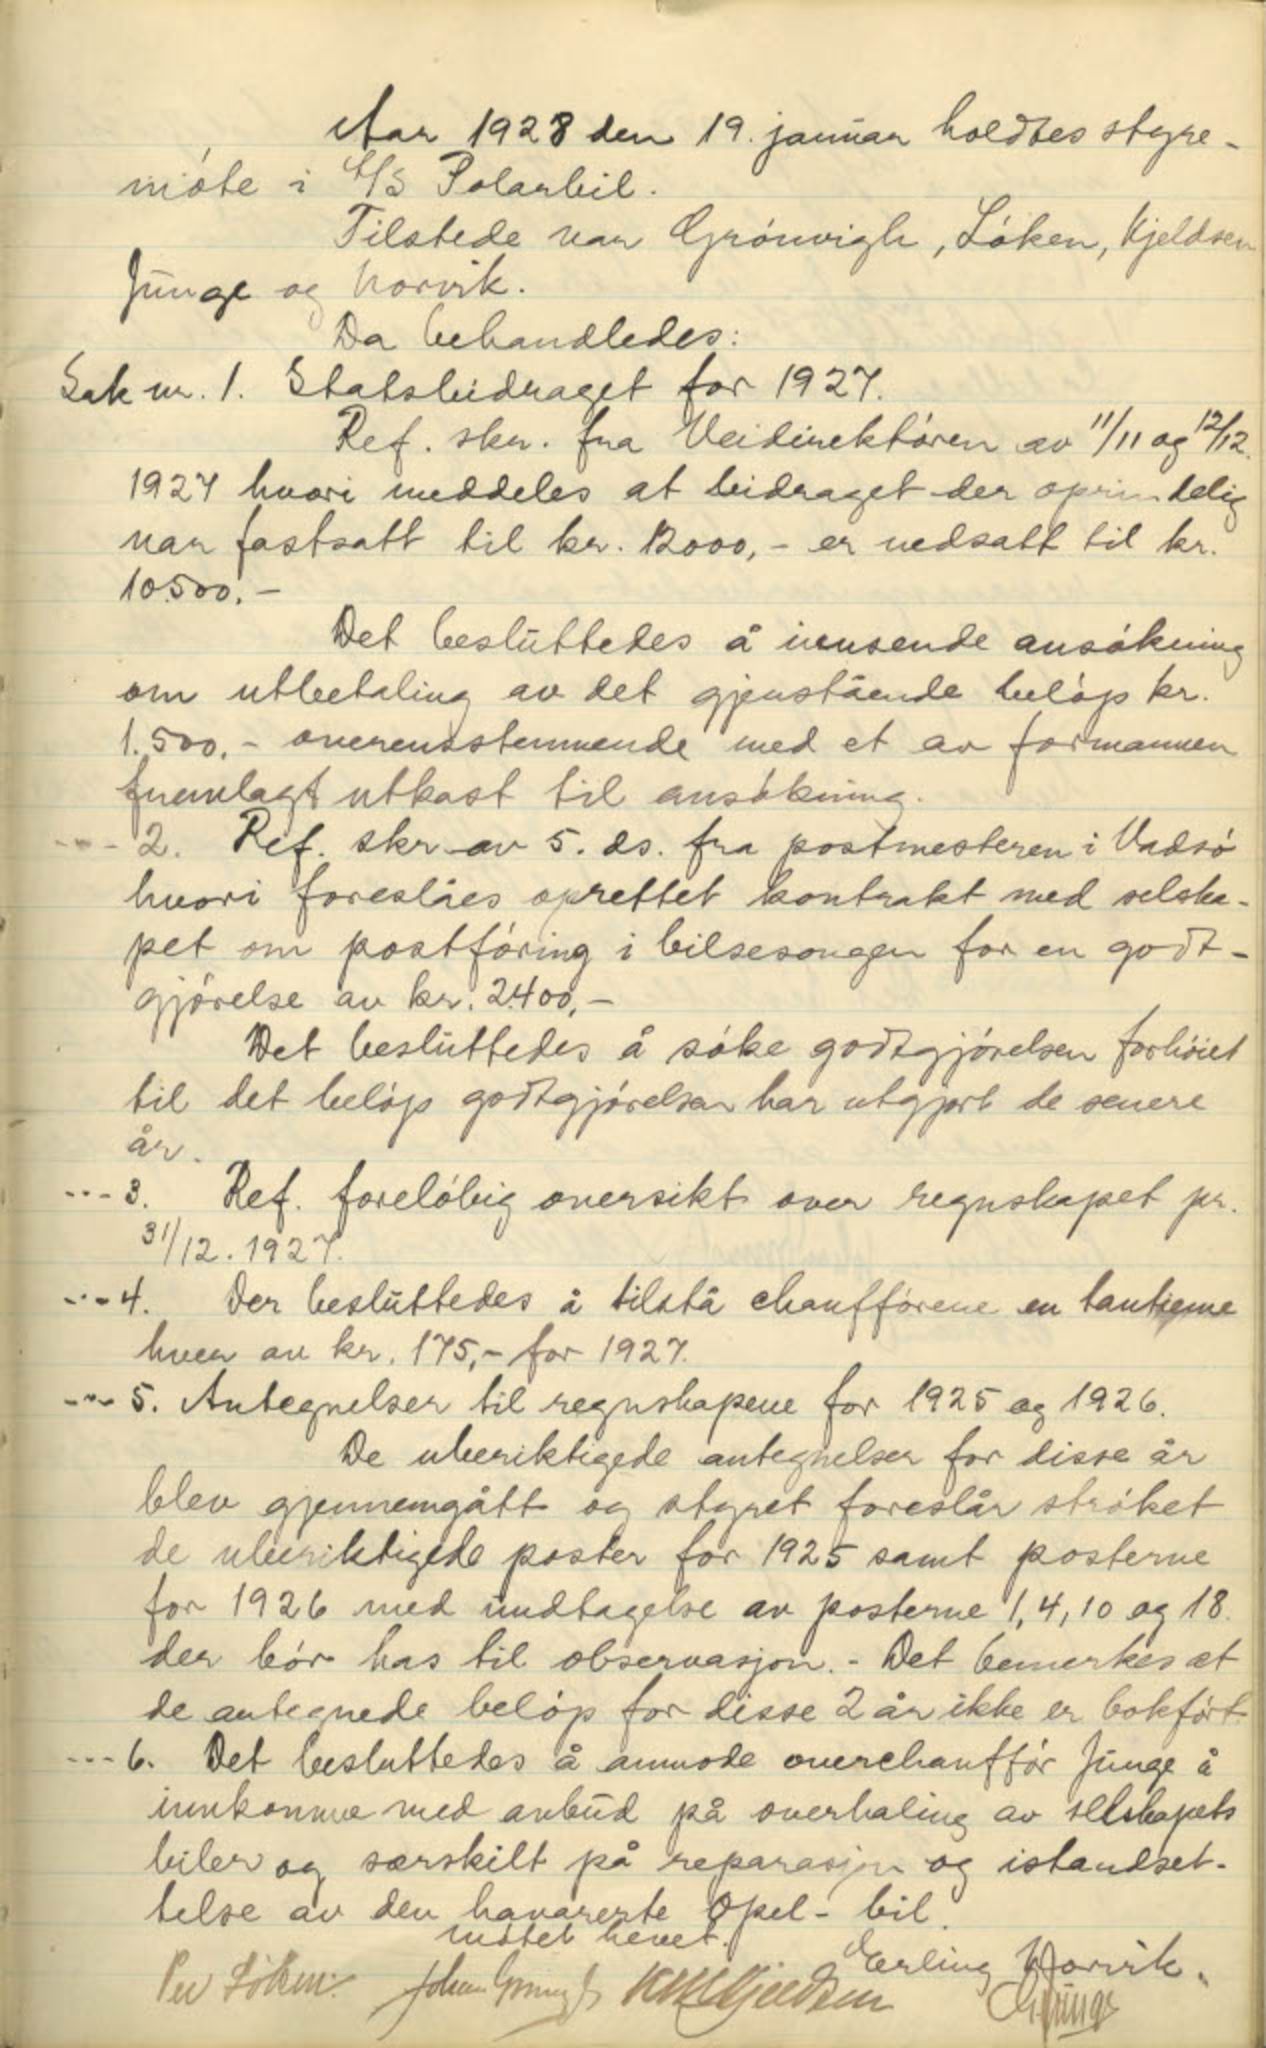 Aar 1928 den 19. januar holdtes styre-
móte i A/S Polarbil.
Tilstede var Grónvigh, Lóken, Kjeldsen
Junge og Norvik.
Da behandledes:
Sak nr. 1. Statsbidraget for 1927.
Ref. skr. fra Veidirektóren av 11/11 og 12/12.
1927 hvori meddeles at bidraget der oprindelig
var fastsatt til kr. 12000,- er nedsatt til kr.
10500.-
Det besluttedes å innsende ansókning
om utbetaling av det gjenstående belóp kr.
1.500.- overensstemmende med et av formannen
fremlagt utkast til ansókning.
--- 2. Ref. skr av 5. ds. fra postmesteren i Vadsó
hvori foreslåes oprettet kontrakt med selska-
pet om postfóring i bilsesongen for en godt-
gjórelse av kr. 2400,-
Det besluttedes å sóke godtgjórelsen forhóiet
til det belóp godtgjórelsen har utgjort de senere
år.
--- 3. Ref. forelóbig oversikt over regnskapet pr.
31/12. 1927.
--- 4. Der besluttedes å tilstå chauffórene en tantieme
hver av kr. 175,- for 1927.
--- 5. Antegnelser til regnskapene for 1925 og 1926.
De uberiktigede antegnelser for disse år
blev gjennemgått og styret foreslår stróket
de uberiktigede poster for 1925 samt posterne
for 1926 med undtagelse av posterne 1, 4, 10 og 18.
der bór has til observasjon. - Det bemerkes at
de antegnede belóp for disse 2 år ikke er bokfórt.
--- 6. Det besluttedes å anmode overchauffór Junge å
innkomme med anbud på overhaling av selskapets
biler og særskilt på reparasjon og istandset-
telse av den havarerte Opel- bil.
Mótet hevet.
Erling Norvik.
Per Lóken. Johan Grónvigh Kjeldsen Junge